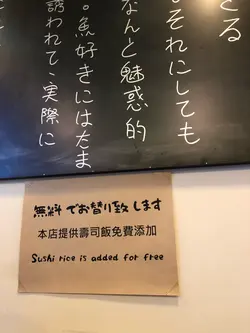 とる
。それにしても
なんと魅惑的
。魚好きにはたま
誘われて、実際に
無料でお替り致します
本店提供壽司飯免費添加
Sushi rice is added for free